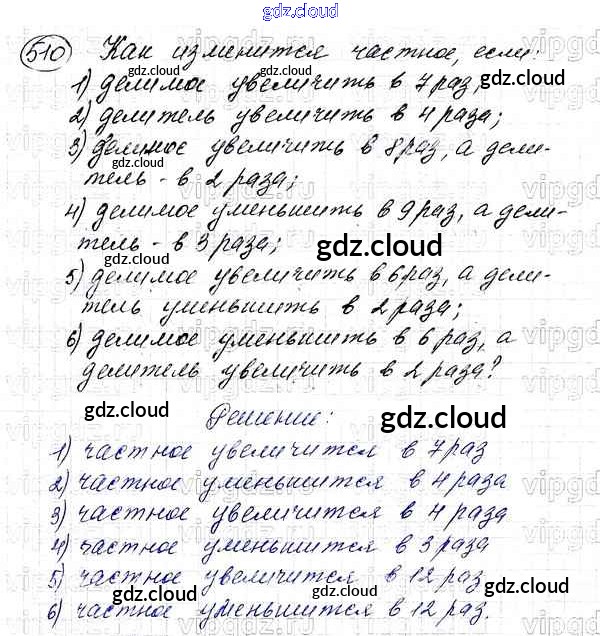 gdz.cloud
510 Как изменится частное, если:
gdz.cloud
1) делимое увеличить в 7 раз;
2) делитель увеличить в 4 раза;
3) делимое увеличить в 8 раз, а дели-
gdz.cloud
тель - в 2 раза;
4) делимое уменьшить в 9 раз, а дели-
тель - в 3 раза;
gdz.cloud
5) делимое увеличить в 6 раз, а дели-
тель уменьшить в 2 раза;
6) делимое уменьшить в 6 раз, а
делитель увеличить в 2 раза?
gdz.cloud
Решение:
gdz.cloud
1) частное увеличится в 7 раз
2) частное уменьшится в 4 раза
3) частное увеличится в 4 раза
4) частное уменьшится в 3 раза
5) частное увеличится в 12 раз
6) частное уменьшится в 12 раз.
gdz.cloud